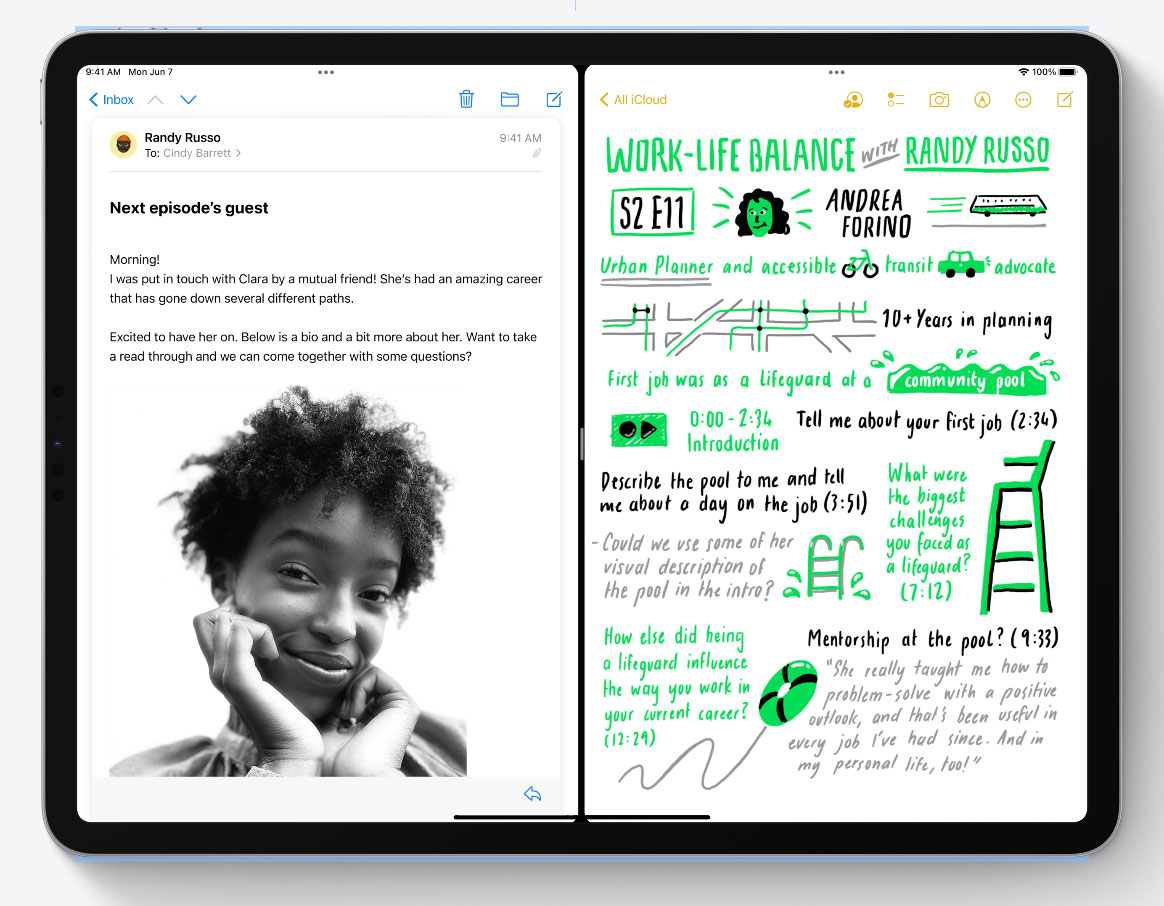 9:41 AM Mon Jun 7
100%
Inbox
All iCloud
Randy Russo
9:41 AM
To: Cindy Barrett
Next episode's guest
Morning!
I was put in touch with Clara by a mutual friend! She's had an amazing career
that has gone down several different paths.
Excited to have her on. Below is a bio and a bit more about her. Want to take
a read through and we can come together with some questions?
WORK-LIFE BALANCE WITH RANDY RUSSO
S2 E11
ANDREA
FORINO
Urban Planner and accessible transit advocate
10+ Years in planning
First job was as a lifeguard at a community pool
0:00 - 2:34
Introduction
Tell me about your first job (2:34)
Describe the pool to me and tell
me about a day on the job (3:51)
- Could we use some of her
visual description of
the pool in the intro?
What were
the biggest
challenges
you faced as
a lifeguard?
(7:12)
How else did being
a lifeguard influence
the way you work in
your current career?
(12:29)
Mentorship at the pool? (9:33)
"She really taught me how to
problem-solve with a positive
outlook, and that's been useful in
every job I've had since. And in
my personal life, too!"